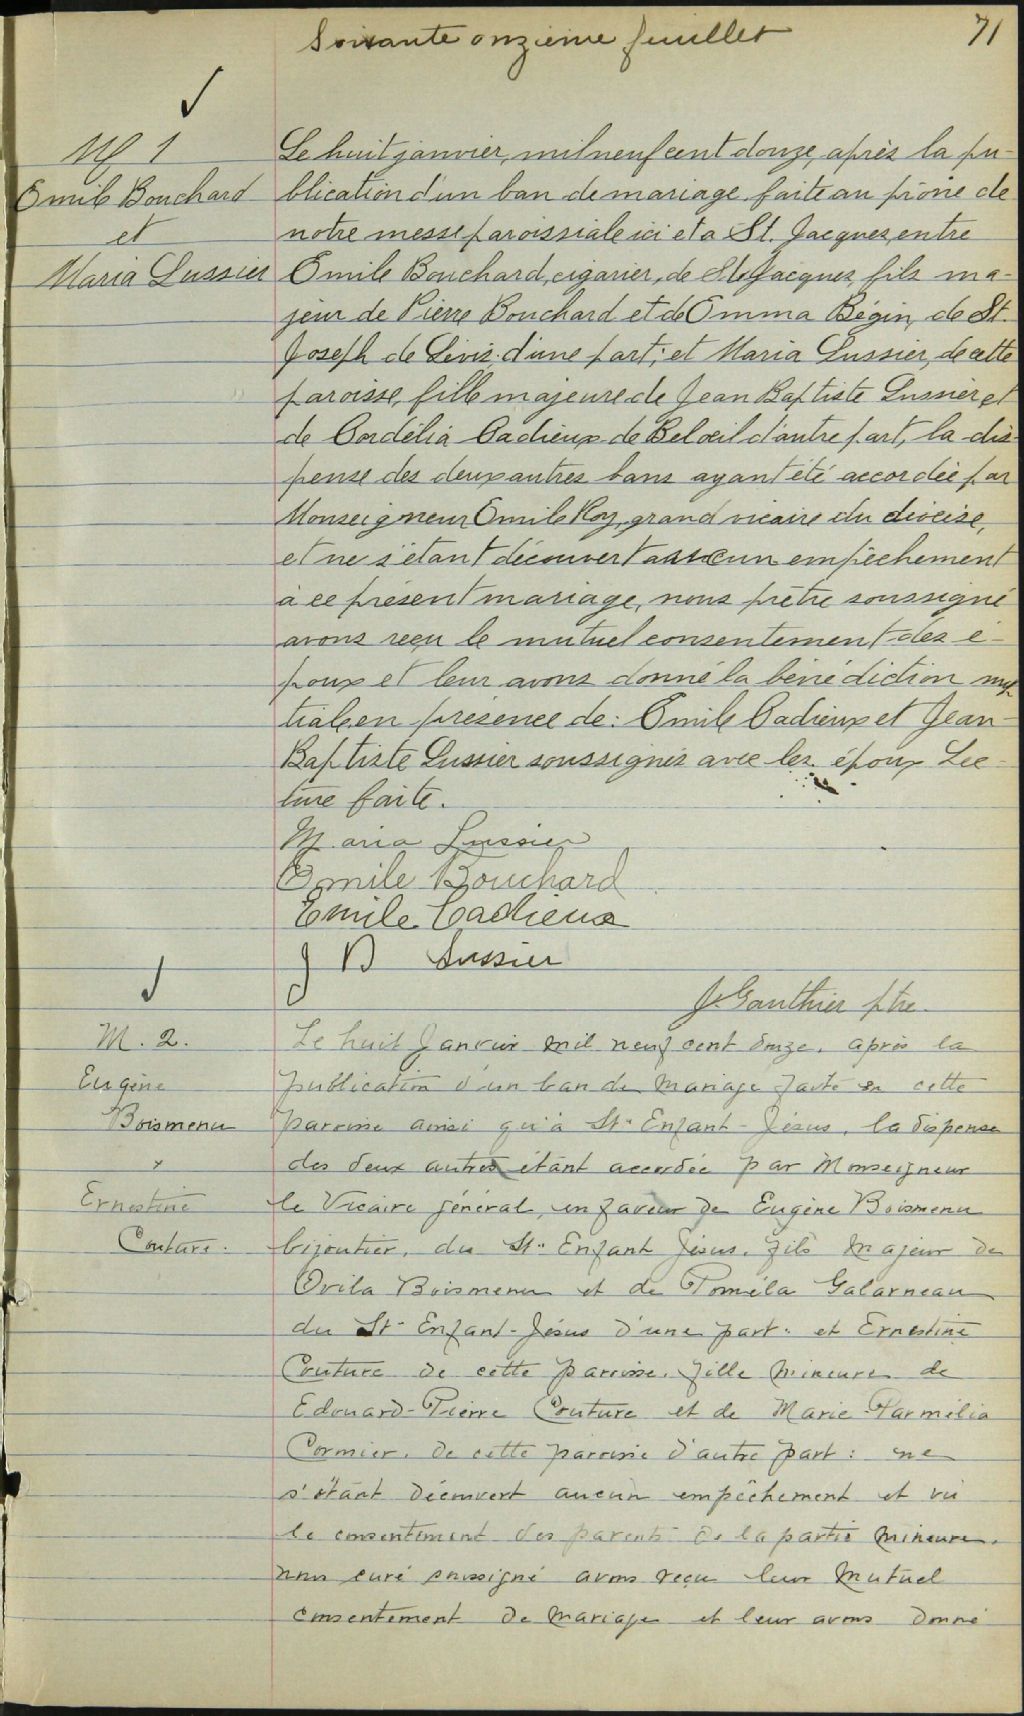 Soixante onzième feuillet
71
M 1
Emile Bouchard
et
Maria Lussier
Le huit janvier, mil neuf cent douze, après la pu-
blication d'un ban de mariage faite au prône de
notre messe paroissiale ici et a St. Jacques, entre
Emile Bouchard, cigarier, de St. Jacques, fils ma-
jeur de Pierre Bouchard et de Emma Bégin, de St.
Joseph de Lévis d'une part; et Maria Lussier, de cette
paroisse, fille majeure de Jean Baptiste Lussier et
de Cordélia Cadieux de Beloeil d'autre part, la dis-
pense des deux autres bans ayant été accordée par
Monseigneur Emile Roy, grand vicaire du diocèse,
et ne s'étant découvert aucun empêchement
à ce présent mariage, nous prêtre soussigné
avons reçu le mutuel consentement des é-
poux et leur avons donné la bénédiction nup
tiale en présence de: Emile Cadieux et Jean-
Baptiste Lussier soussignés avec les époux Lec-
ture faite.
Maria Lussier
Emile Bouchard
Emile Cadieux
J B Lussier
J. Gauthier ptre.
M. 2.
Eugène
Boismenu
x
Ernestine
Couture.
Le huit Janvier mil neuf cent douze, après la
publication d'un ban de mariage faite en cette
paroisse ainsi qu'à St-Enfant-Jésus, la dispense
des deux autres étant accordée par Monseigneur
le Vicaire général, en faveur de Eugène Boismenu
bijoutier, du St-Enfant Jésus, fils majeur de
Ovila Boismenu et de Poméla Galarneau
du St-Enfant-Jésus d'une part: et Ernestine
Couture de cette paroisse, fille mineure de
Edouard-Pierre Couture et de Marie Parmélia
Cormier, de cette paroisse d'autre part: ne
s'étant découvert aucun empêchement et vu
le consentement des parents de la partie mineure,
nous curé soussigné avons reçu leur mutuel
consentement de mariage et leur avons donné